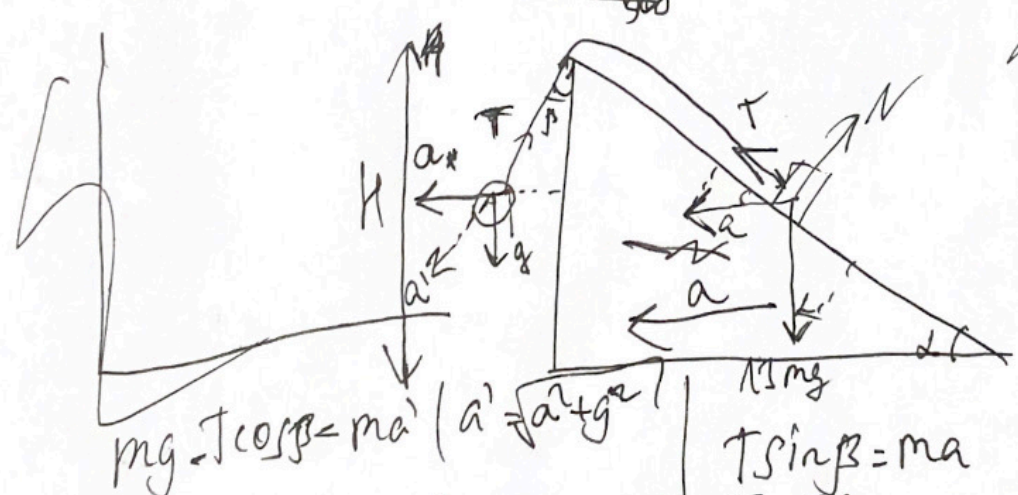 T
N
β
T
a
H
g
a
a'
a
α
mg
mg - T cos β = ma' | a' = √a²+g² |
T sin β = ma